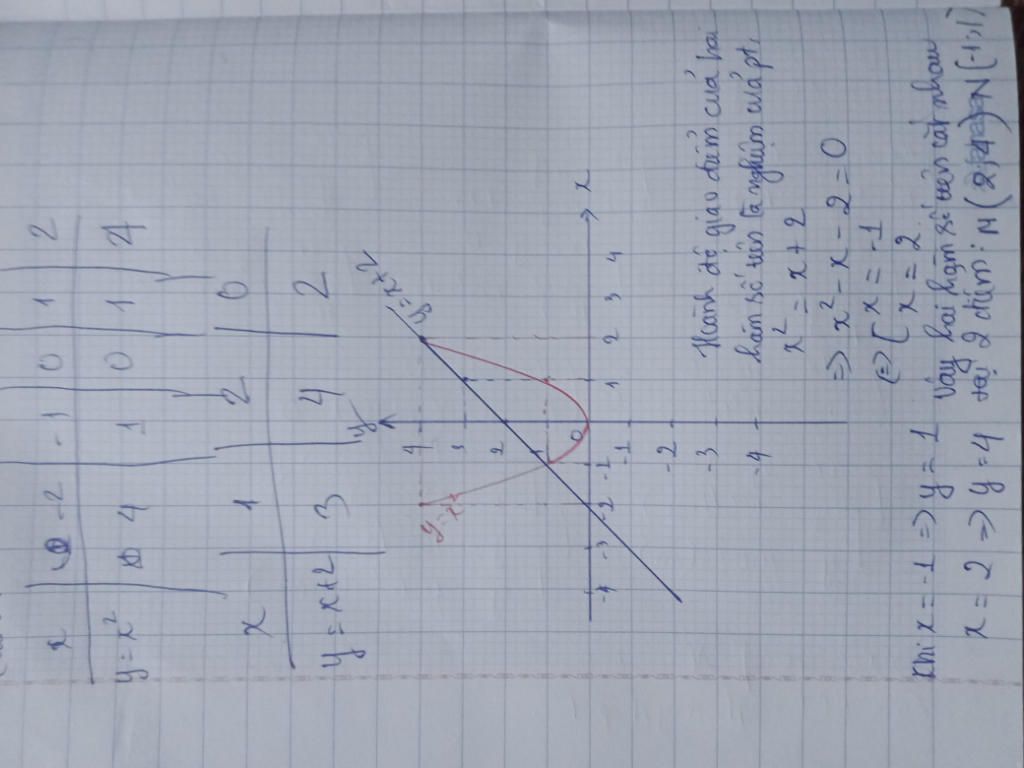 x -2 -1 0 1 2
y = x² 4 1 0 1 4
x 1 2 0
y = x+2 3 4 2
y
y = x+2
y = x²
4
3
2
0
-4 -3 -2 -1 1 2 3 4 x
-1
-2
-3
-4
Hành độ giao điểm của hai
hàm số trên là nghiệm của pt,
x² = x + 2
=> x² - x - 2 = 0
<=> [ x = -1
x = 2
Khi x = -1 => y = 1
x = 2 => y = 4
Vậy hai hàm số trên cắt nhau
tại 2 điểm: M (2,4) N (-1,1)